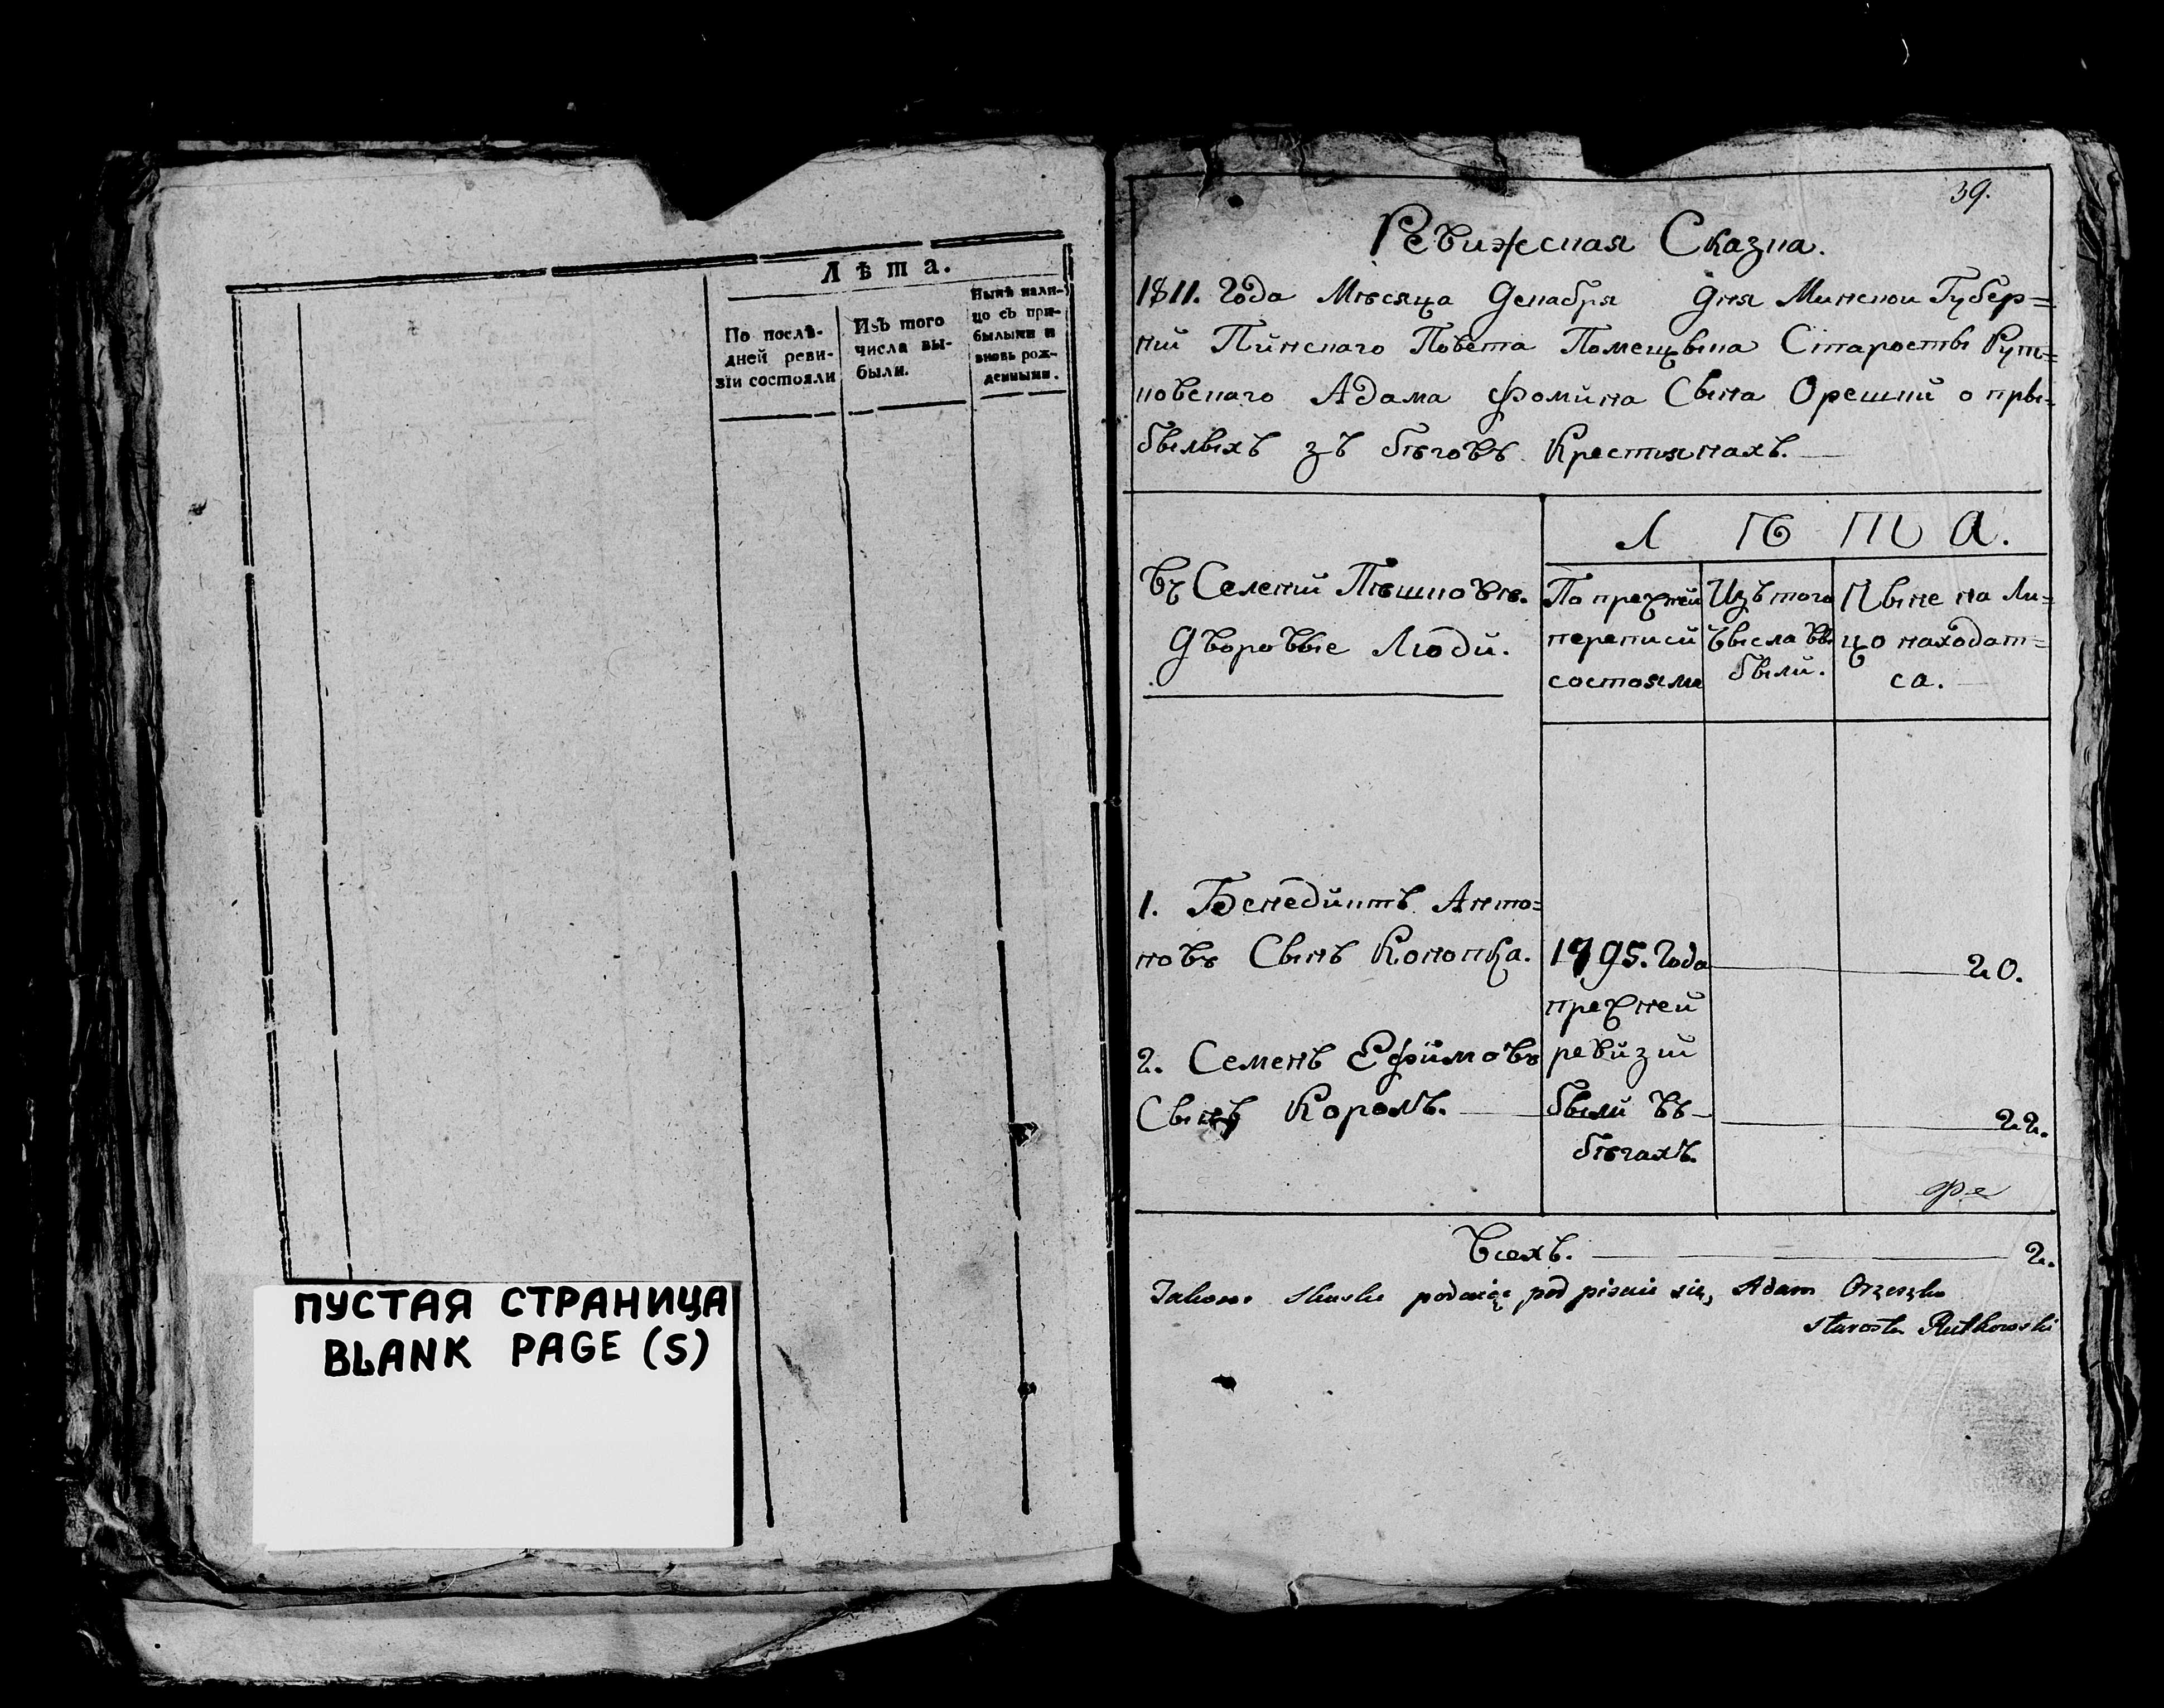 Лѣта.
По послѣ-
дней реви-
зіи состояли
Изъ того
числа вы-
были.
Нынѣ нали-
цо съ при-
былыми и
вновь рож-
денными.
ПУСТАЯ СТРАНИЦА
BLANK PAGE (S)
39.
Ревижская Сказка.
1811. Года Мѣсяца Декабря Дня Минской Губер=
ний Пинскаго Повета Помещыка Старосты Рут=
ковскаго Адама Фомина Сына Орешки о при=
былыхъ зъ бѣговъ Крестьянахъ.
въ Селений Пѣшковѣ.
Дворовые Люди.
ЛѢТА.
По прежней
переписи
состояли
Изъ того
Числа вы
были.
Ныне на Ли=
цо находят=
са.
1. Бенедиктъ Анто=
новъ Сынъ Конопка.
1795. Года
20.
прежней
2. Семенъ Ефимовъ
ревизии
Сынъ Король.
были въ
22.
бѣгахъ.
Всехъ. 2.
Takowe skaske podaiąc pod pisuie się, Adam Orzeszko
starosta Rutkowski